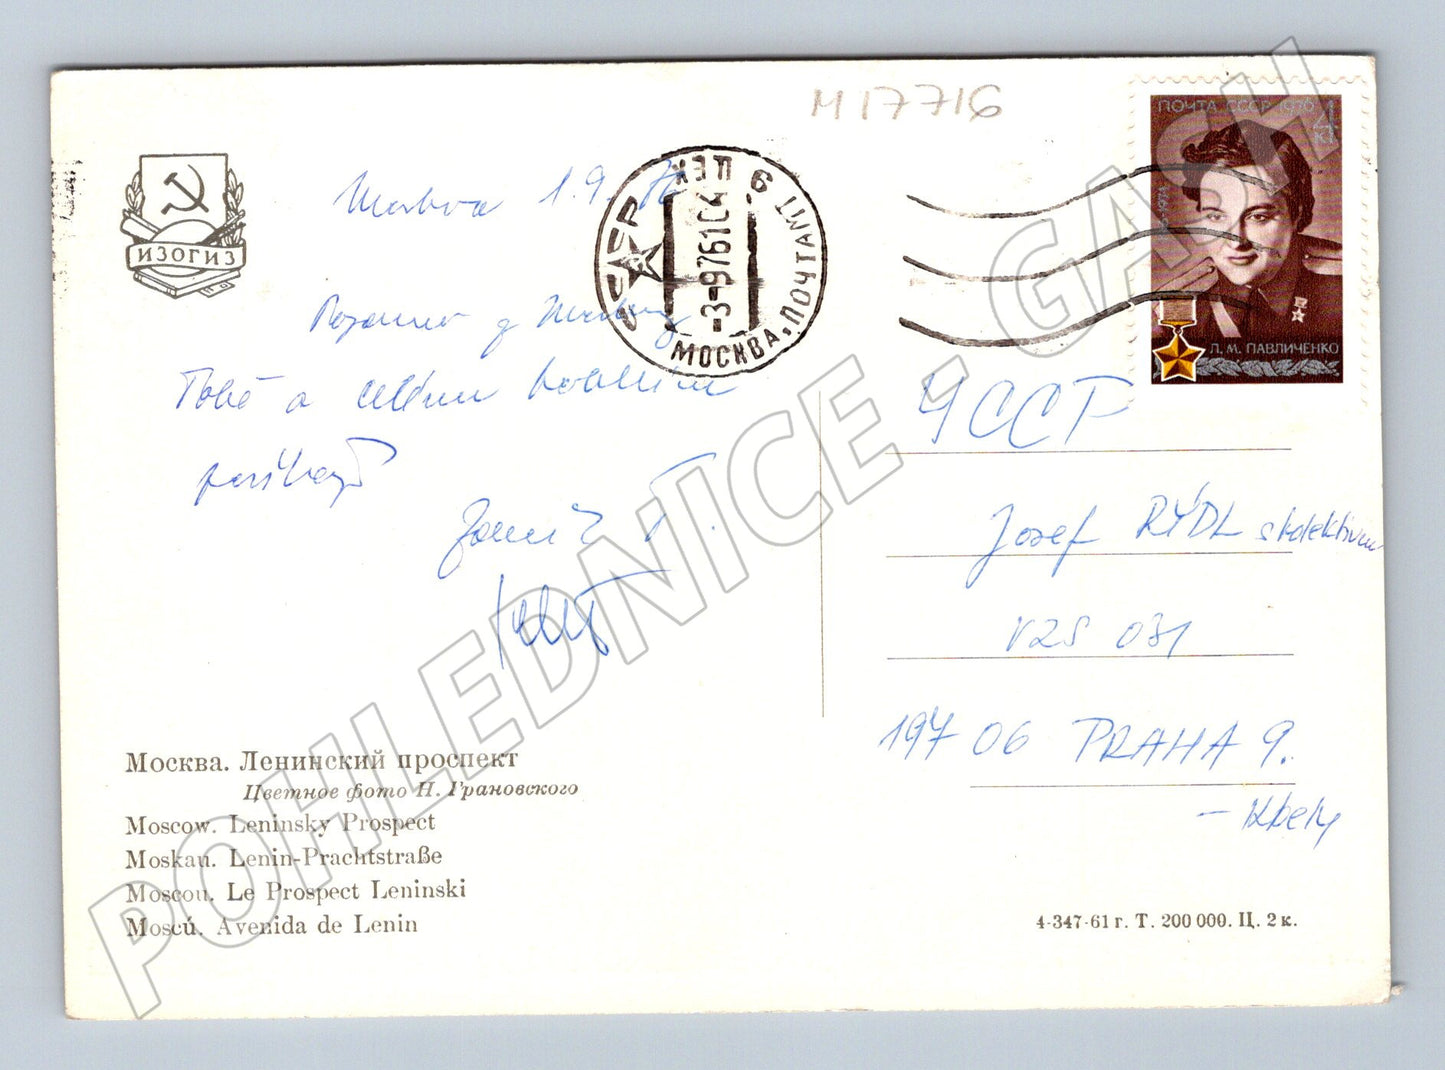 M 17716
ПОЧТА СССР 1976 4 к
Л. М. ПАВЛИЧЕНКО
ИЗОГИЗ
СССР
МОСКВА, ПОЧТАМТ
9 ЦЕХ
-3-976104
Moskva 1.9. 76
Pozdrav z Moskvy
Tobě a celému kolektivu
posílají
ЧССР
Josef RÝDL s kolektivem
VZS 031
197 06 PRAHA 9.
- Kbely
Москва. Ленинский проспект
Цветное фото Н. Грановского
Moscow. Leninsky Prospect
Moskau. Lenin-Prachtstraße
Moscou. Le Prospect Leninski
Moscú. Avenida de Lenin
4-347-61 г. Т. 200 000. Ц. 2 к.
POHLEDNICE - GASH